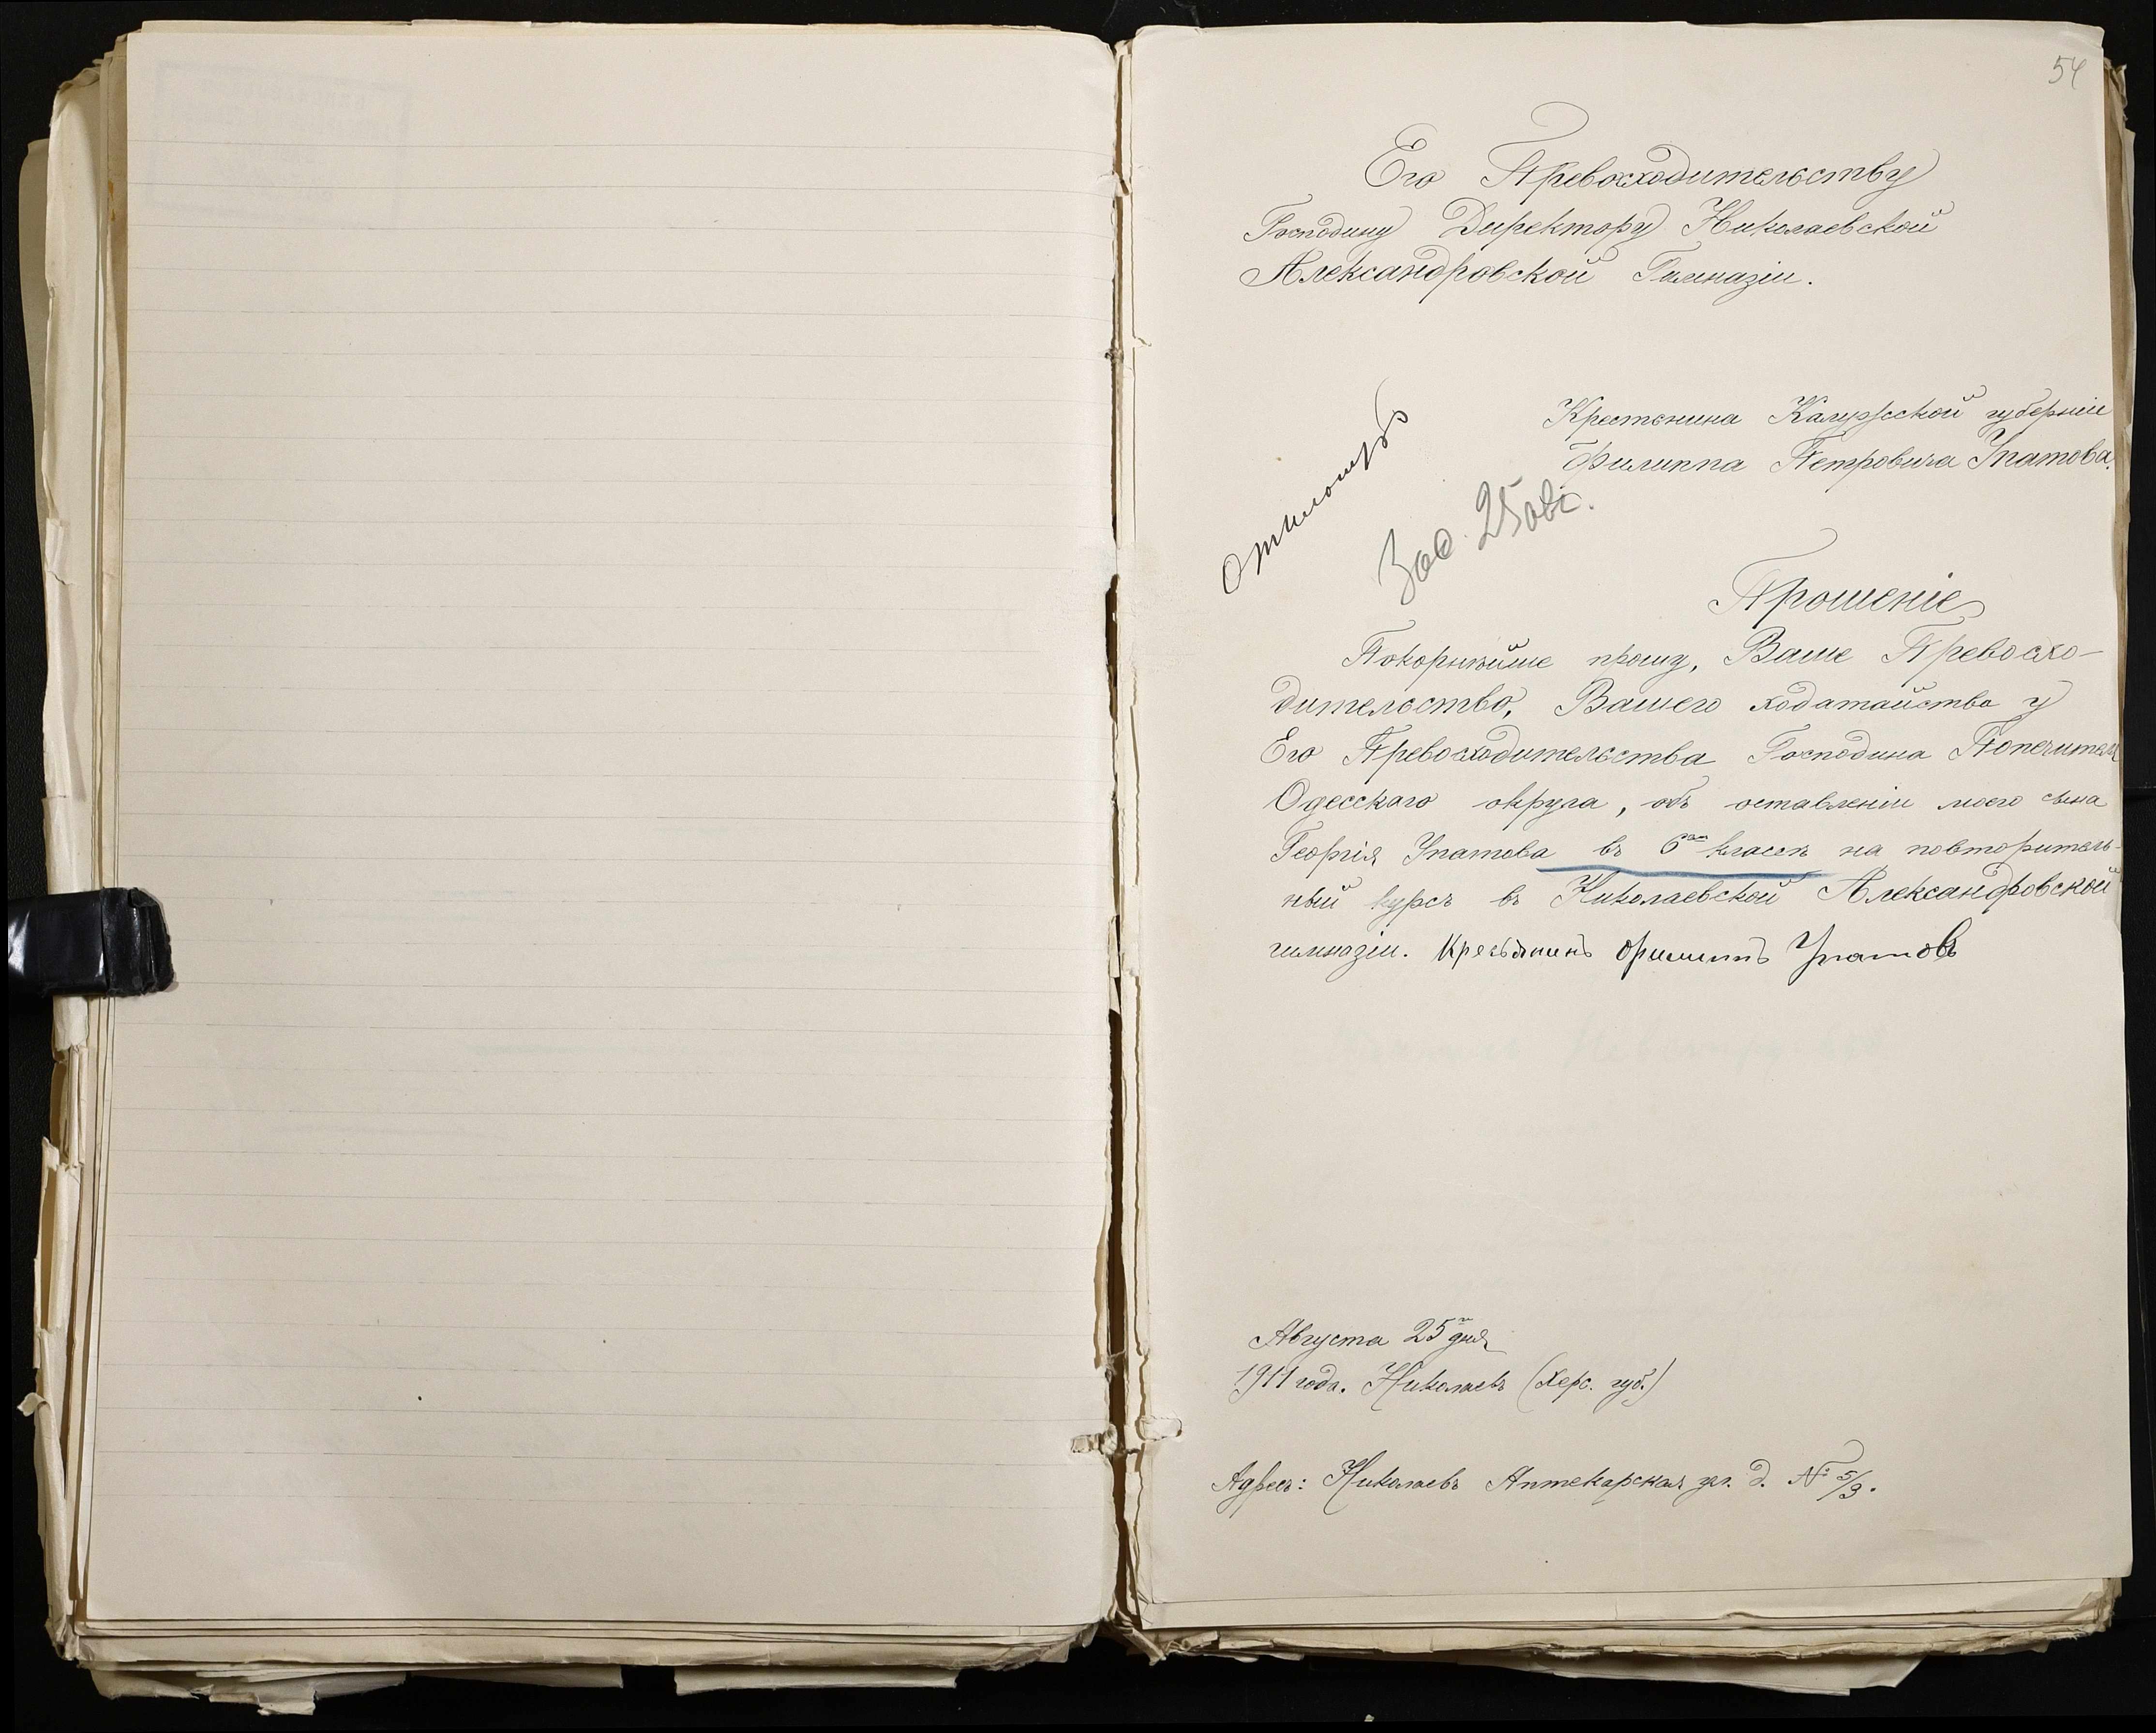 54
Его Превосходительству
Господину Директору Николаевской
Александровской Гимназіи.
Крестьянина Калужской губерніи
Филиппа Петровича Упатова.
Отклонить
Зас. 25 авг.
Прошеніе
Покорнѣйше прошу, Ваше Превосхо-
дительство, Вашего ходатайства у
Его Превосходительства Господина Попечителя
Одесскаго округа, объ оставленіи моего сына
Георгія Упатова въ 6ом классѣ на повторитель-
ный курсъ въ Николаевской Александровской
гимназіи. Кресьянинъ Филиппъ Упатовъ
Августа 25 дня
1911 года. Николаевъ (Херс. губ.)
Адресъ: Николаевъ Аптекарская ул. д. № 5/9.